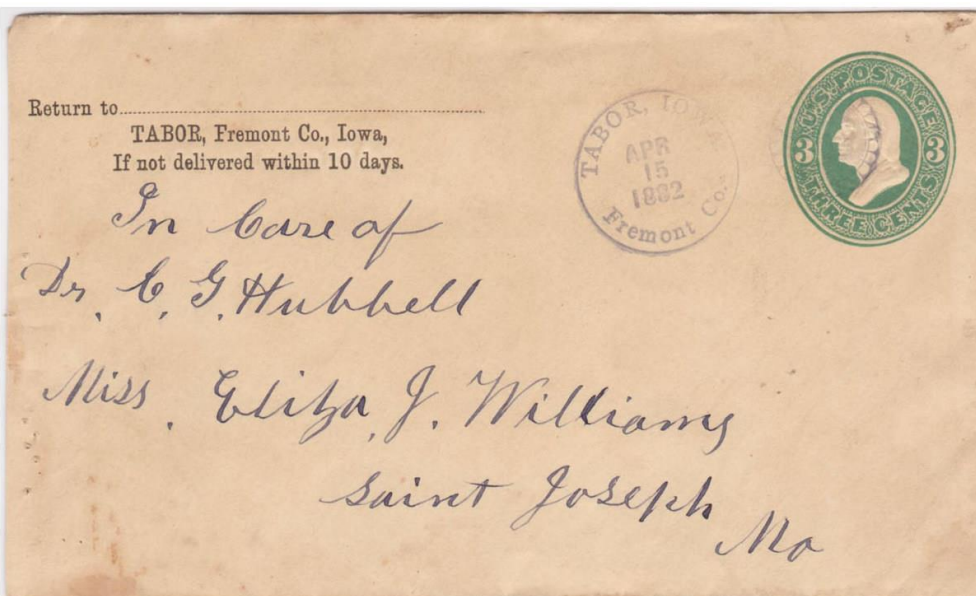 Return to
TABOR, Fremont Co., Iowa,
If not delivered within 10 days.
TABOR, IOWA.
APR
15
1882
Fremont Co.
U.S. POSTAGE
3 3
THREE CENTS
In Care of
Dr. C. G. Hubbell
Miss. Eliza. J. Williams
Saint Joseph
Mo